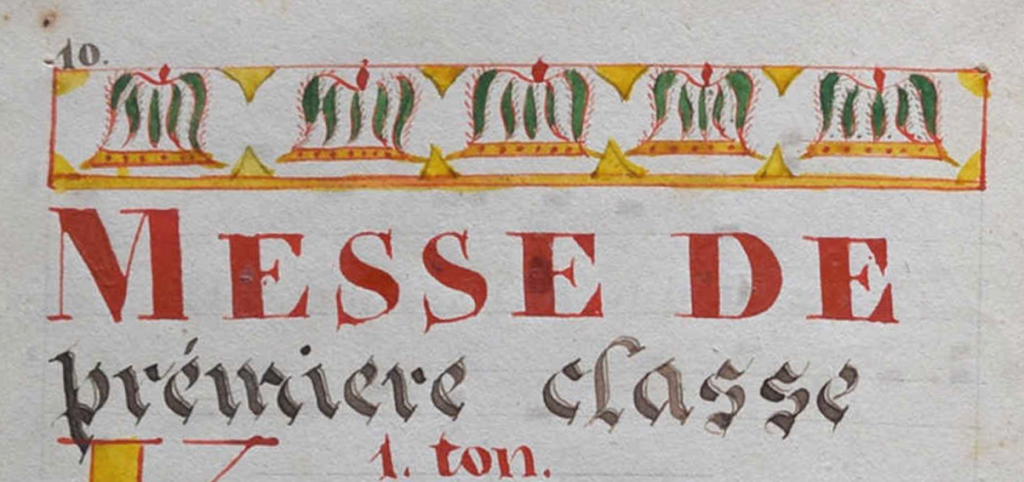 10.
MESSE DE
prémiere classe
1. ton.